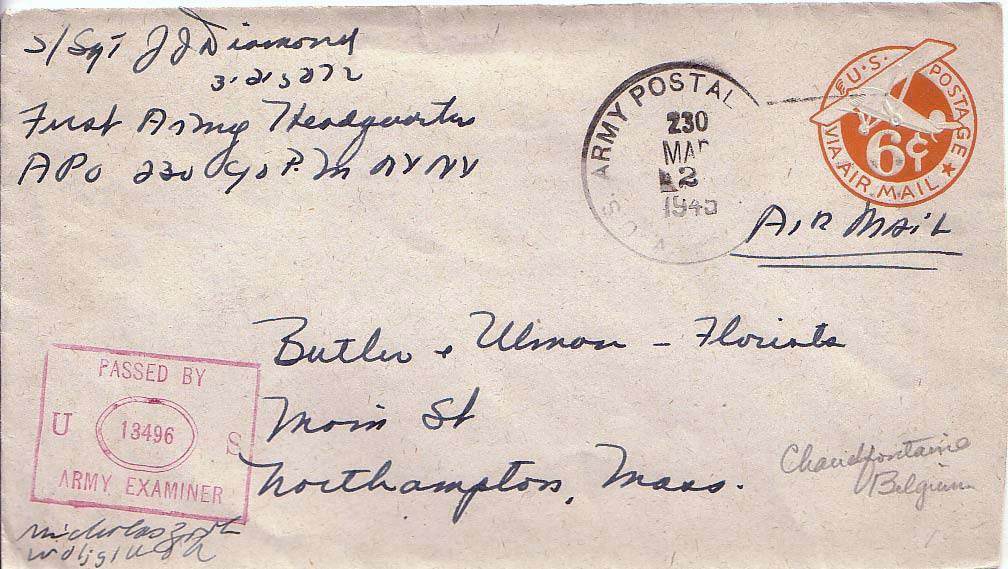 S/Sgt J J Diamond
First Army Headquarters
APO 230 c/o P.M NY NY
U.S. ARMY POSTAL
230
MAR
2
1945
U.S. POSTAGE
6¢
VIA AIR MAIL
AIR MAIL
Butler & Ulman - Florists
Main St
Northampton, Mass.
PASSED BY
U 13496 S
ARMY EXAMINER
Chaudfontaine
Belgium
Nicholas